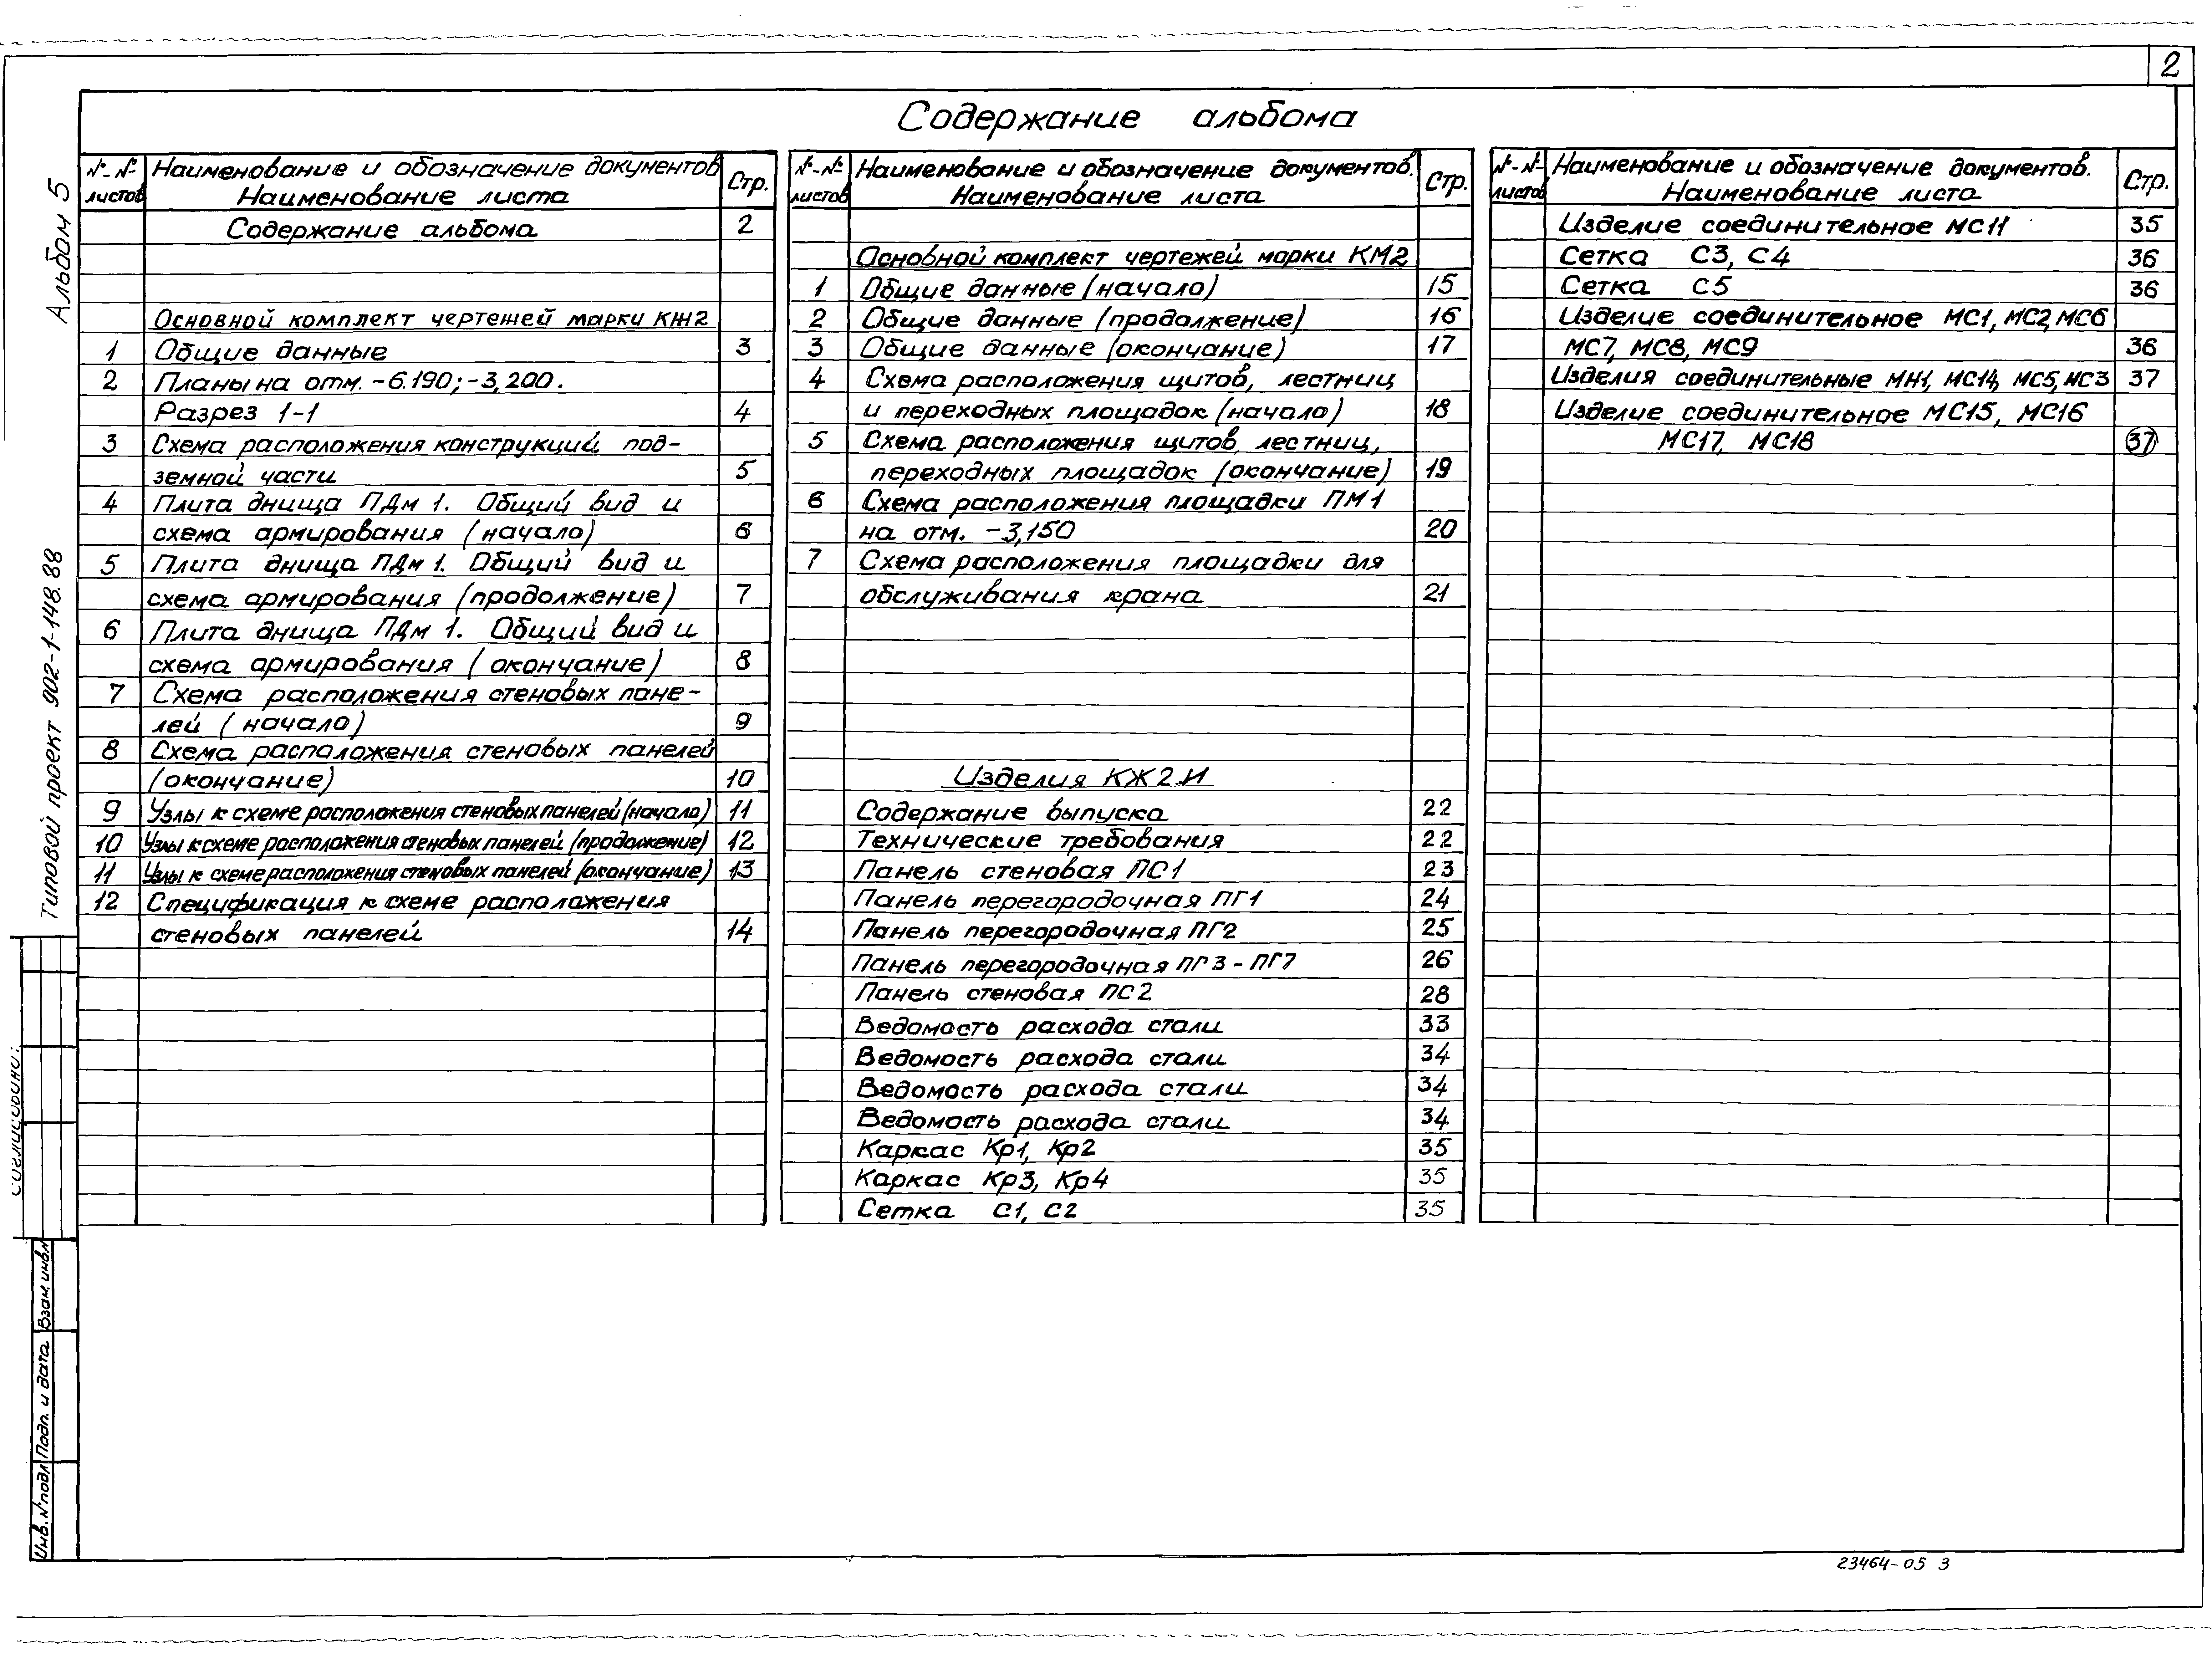 2
Содержание альбома
Альбом 5
Типовой проект 902-1-148.88
Согласовано:
Взам. инв.№
Подп. и дата
Инв.№подл
№-№ листов Наименование и обозначение документов Наименование листа Стр.
Содержание альбома 2
Основной комплект чертежей марки КЖ2
1 Общие данные 3
2 Планы на отм. -6.190; -3,200.
Разрез 1-1 4
3 Схема расположения конструкций под-
земной части 5
4 Плита днища ПДм 1. Общий вид и
схема армирования (начало) 6
5 Плита днища ПДм 1. Общий вид и
схема армирования (продолжение) 7
6 Плита днища ПДм 1. Общий вид и
схема армирования (окончание) 8
7 Схема расположения стеновых пане-
лей (начало) 9
8 Схема расположения стеновых панелей
(окончание) 10
9 Узлы к схеме расположения стеновых панелей (начало) 11
10 Узлы к схеме расположения стеновых панелей (продолжение) 12
11 Узлы к схеме расположения стеновых панелей (окончание) 13
12 Спецификация к схеме расположения
стеновых панелей 14
№-№ листов Наименование и обозначение документов. Наименование листа Стр.
Основной комплект чертежей марки КМ2
1 Общие данные (начало) 15
2 Общие данные (продолжение) 16
3 Общие данные (окончание) 17
4 Схема расположения щитов, лестниц
и переходных площадок (начало) 18
5 Схема расположения щитов, лестниц,
переходных площадок (окончание) 19
6 Схема расположения площадки ПМ1
на отм. -3,150 20
7 Схема расположения площадки для
обслуживания крана 21
Изделия КЖ2.И
Содержание выпуска 22
Технические требования 22
Панель стеновая ПС1 23
Панель перегородочная ПГ1 24
Панель перегородочная ПГ2 25
Панель перегородочная ПГ3 - ПГ7 26
Панель стеновая ПС2 28
Ведомость расхода стали 33
Ведомость расхода стали 34
Ведомость расхода стали 34
Ведомость расхода стали 34
Каркас Кр1, Кр2 35
Каркас Кр3, Кр4 35
Сетка С1, С2 35
№-№ листов Наименование и обозначение документов. Наименование листа Стр.
Изделие соединительное МС11 35
Сетка С3, С4 36
Сетка С5 36
Изделие соединительное МС1, МС2, МС6
МС7, МС8, МС9 36
Изделия соединительные МН1, МС14, МС5, МС3 37
Изделие соединительное МС15, МС16
МС17, МС18 37
23464-05 3